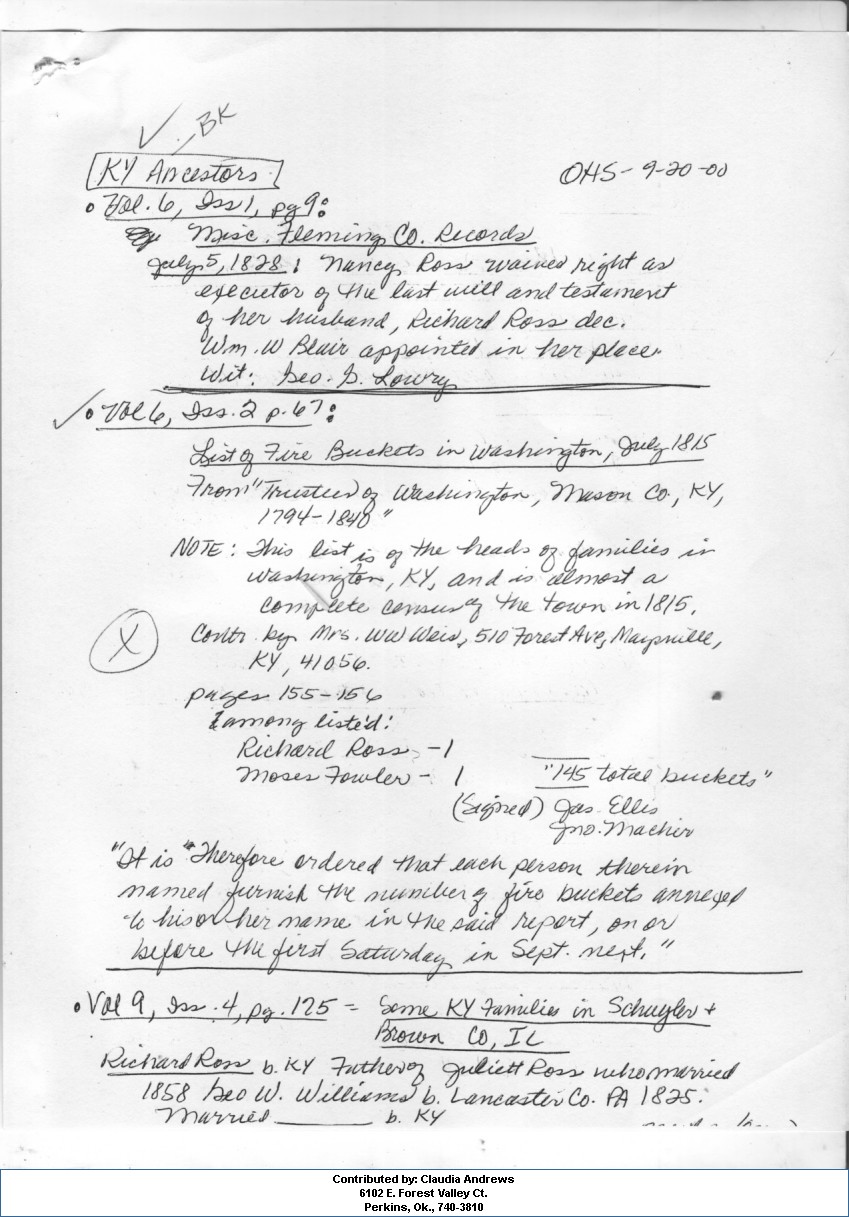 ✓ . BK
KY Ancestors. OHS - 9-20-00
• Vol. 6, Iss 1, pg 9:
Misc. Fleming Co. Records
July 5, 1828: Nancy Ross waived right as
executor of the last will and testament
of her husband, Richard Ross dec.
Wm. W Blair appointed in her place.
Wit: Geo. G. Lowry
✓ • Vol 6, Iss. 2 p. 67:
List of Fire Buckets in Washington, July 1815
From "Trustees of Washington, Mason Co., KY,
1794-1840"
NOTE: This list is of the heads of families in
Washington, KY, and is almost a
complete census of the town in 1815.
X
Contr. by Mrs. WW Weis, 510 Forest Ave, Maysville,
KY, 41056.
pages 155-156
among listed:
Richard Ross - 1
Moses Fowler - 1 "145 total buckets"
(Signed) Jas. Ellis
Jno. Machir
"It is "Therefore ordered that each person therein
named furnish the number of fire buckets annexed
to his or her name in the said report, on or
before the first Saturday in Sept. next."
• Vol 9, Iss. 4, pg. 125 = Some KY Families in Schuyler +
Brown Co, IL
Richard Ross b. KY Father of Juliett Ross who married
1858 Geo W. Williams b. Lancaster Co. PA 1825.
Married ______ b. KY
Contributed by: Claudia Andrews
6102 E. Forest Valley Ct.
Perkins, Ok., 740-3810